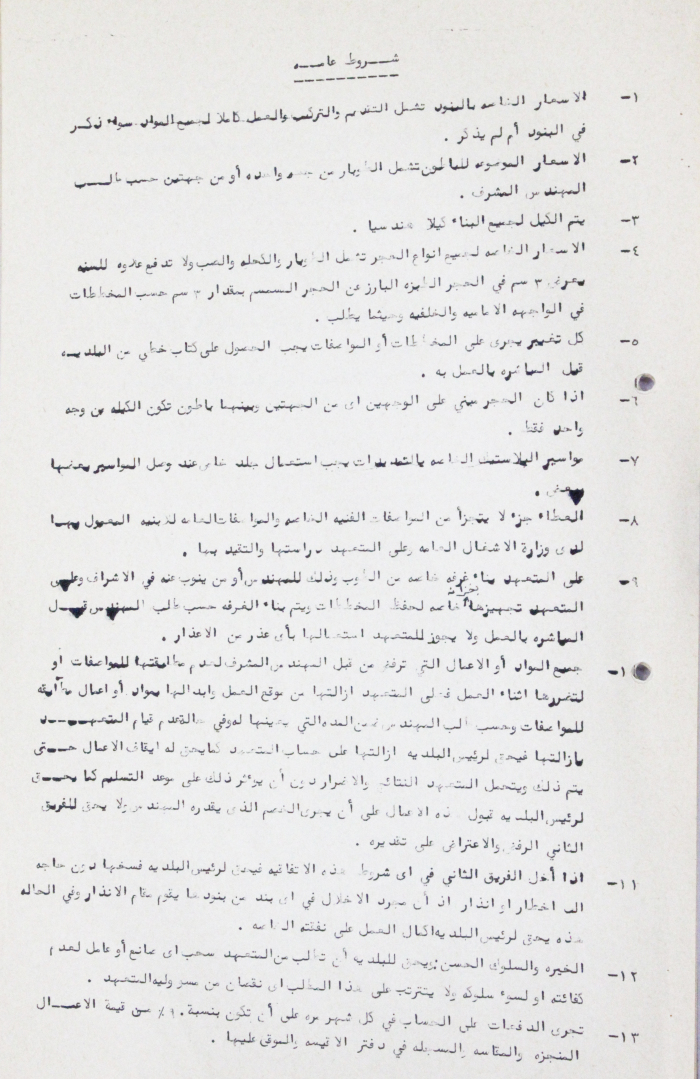 شروط عامه
١- الاسعار الخاصه بالبنود تشمل التقديم والتركيب والعمل كاملا لجميع المواد سواء ذكر
في البنود أم لم يذكر .
٢- الاسعار الموضوعه للباطون تشمل الطوبار من جهه واحده أو من جهتين حسب طلب
المهندس المشرف .
٣- يتم الكيل لجميع البناء كيلا هندسيا .
٤- الاسعار الخاصه لجميع انواع الحجر تشمل الطوبار والكحله والصب ولا تدفع علاوه للسنه
بعرض ٣ سم في الحجر الطبزه البارز عن الحجر المسمسم بمقدار ٣ سم حسب المخططات
في الواجهه الاماميه والخلفيه وحيثما يطلب .
٥- كل تغيير يجرى على المخططات أو المواصفات يجب الحصول على كتاب خطي من البلديه
قبل المباشره بالعمل به .
٦- اذا كان الحجر مبني على الوجهين اى من الجهتين وبينهما باطون تكون الكيله من وجه
واحد فقط .
٧- مواسير البلاستيك الخاصه بالتمديدات يجب استعمال جلد خاص عند وصل المواسير بعضها
ببعض .
٨- العطاء جزء لا يتجزأ من المواصفات الفنيه الخاصه والمواصفات العامه للابنيه المعمول بها
لدى وزارة الاشغال العامه وعلى المتعهد دراستها والتقيد بها .
٩- على المتعهد بناء غرفه خاصه من الطوب وذلك للمهندس أو من ينوب عنه في الاشراف وعلى
المتعهد تجهيزها بخزانه خاصه لحفظ المخططات ويتم بناء الغرفه حسب طلب المهندس قبل
المباشره بالعمل ولا يجوز للمتعهد استعمالها بأى عذر من الاعذار .
١٠- جميع المواد أو الاعمال التي ترفض من قبل المهندس المشرف لعدم مطابقتها للمواصفات او
لتضررها اثناء العمل فعلى المتعهد ازالتها من موقع العمل وابدالها بمواد أو اعمال مطابقه
للمواصفات وحسب طلب المهندس ضمن المده التي يعينها له وفي حالة عدم قيام المتعهد
بازالتها فيحق لرئيس البلديه ازالتها على حساب المتعهد كما يحق له ايقاف الاعمال حتى
يتم ذلك ويتحمل المتعهد النتائج والاضرار دون أن يؤثر ذلك على موعد التسليم كما يحق
لرئيس البلديه قبول هذه الاعمال على أن يجرى الخصم الذى يقدره المهندس ولا يحق للفريق
الثاني الرفض والاعتراض على تقديره .
١١- اذا أخل الفريق الثاني في اى شروط هذه الاتفاقيه فيحق لرئيس البلديه فسخها دون حاجه
الى اخطار او انذار اذ أن مجرد الاخلال في اى بند من بنودها يقوم مقام الانذار وفي الحاله
هذه يحق لرئيس البلديه اكمال العمل على نفقته الخاصه .
١٢- الخبره والسلوك الحسن : ويحق للبلديه أن تطلب من المتعهد سحب اى صانع أو عامل لعدم
كفائته او لسوء سلوكه ولا يترتب على هذا الطلب اى نقصان من مسؤوليه المتعهد .
١٣- تجرى الدفعات على الحساب في كل شهر مره على أن تكون بنسبة من قيمة الاعمال
المنجزه والمقاسه والمسجله في دفتر الاقيسه والموقع عليها .